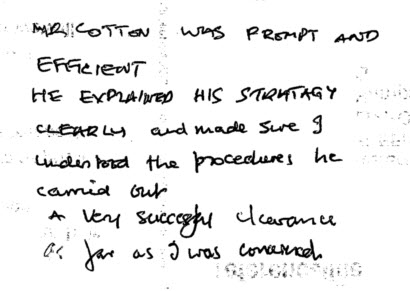 MR. COTTON WAS PROMPT AND
EFFICIENT
HE EXPLAINED HIS STRATAGY
CLEARLY and made sure I
understood the procedures he
carried out
A very successful clearance
as far as I was concerned.